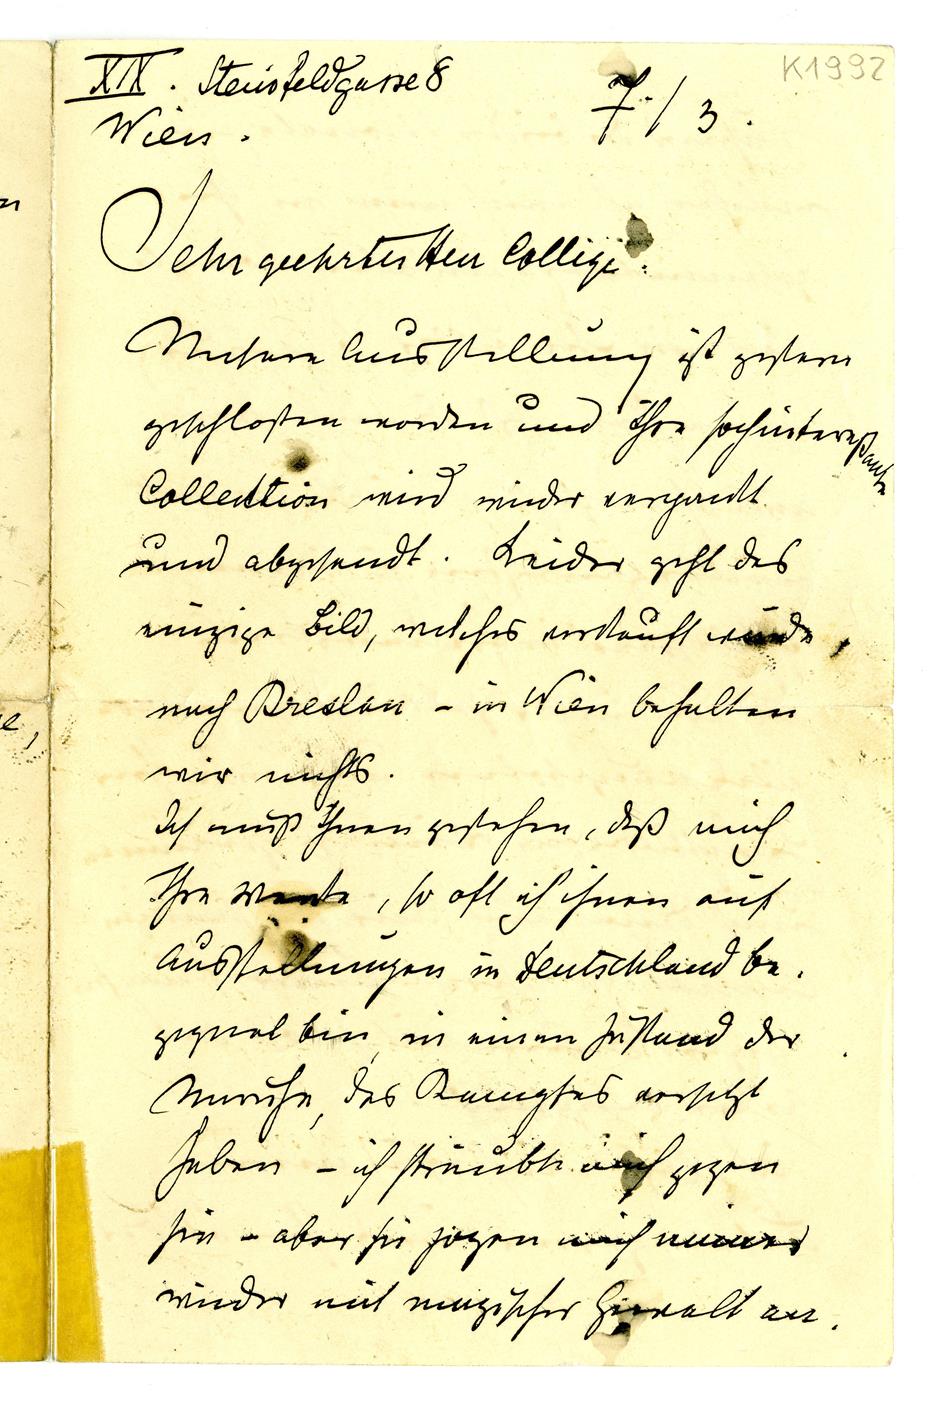 K1992
XIX. Steinfeldgasse 8
Wien.
7./3.
Sehr geehrter Herr College:
Unsere Ausstellung ist gestern
geschlossen worden und Ihre hochinteressante
Collection wird wieder verpackt
und abgesandt. Leider geht das
einzige Bild, welches verkauft wurde,
nach Breslau – in Wien behalten
wir nichts.
Ich muß Ihnen gestehen, daß mich
Ihre Werke, so oft ich ihnen auf
Ausstellungen in Deutschland be-
gegnet bin, in einen Zustand der
Unruhe, des Kampfes versetzt
haben – ich sträubte mich gegen
sie – aber sie zogen mich immer
wieder mit magischer Gewalt an.